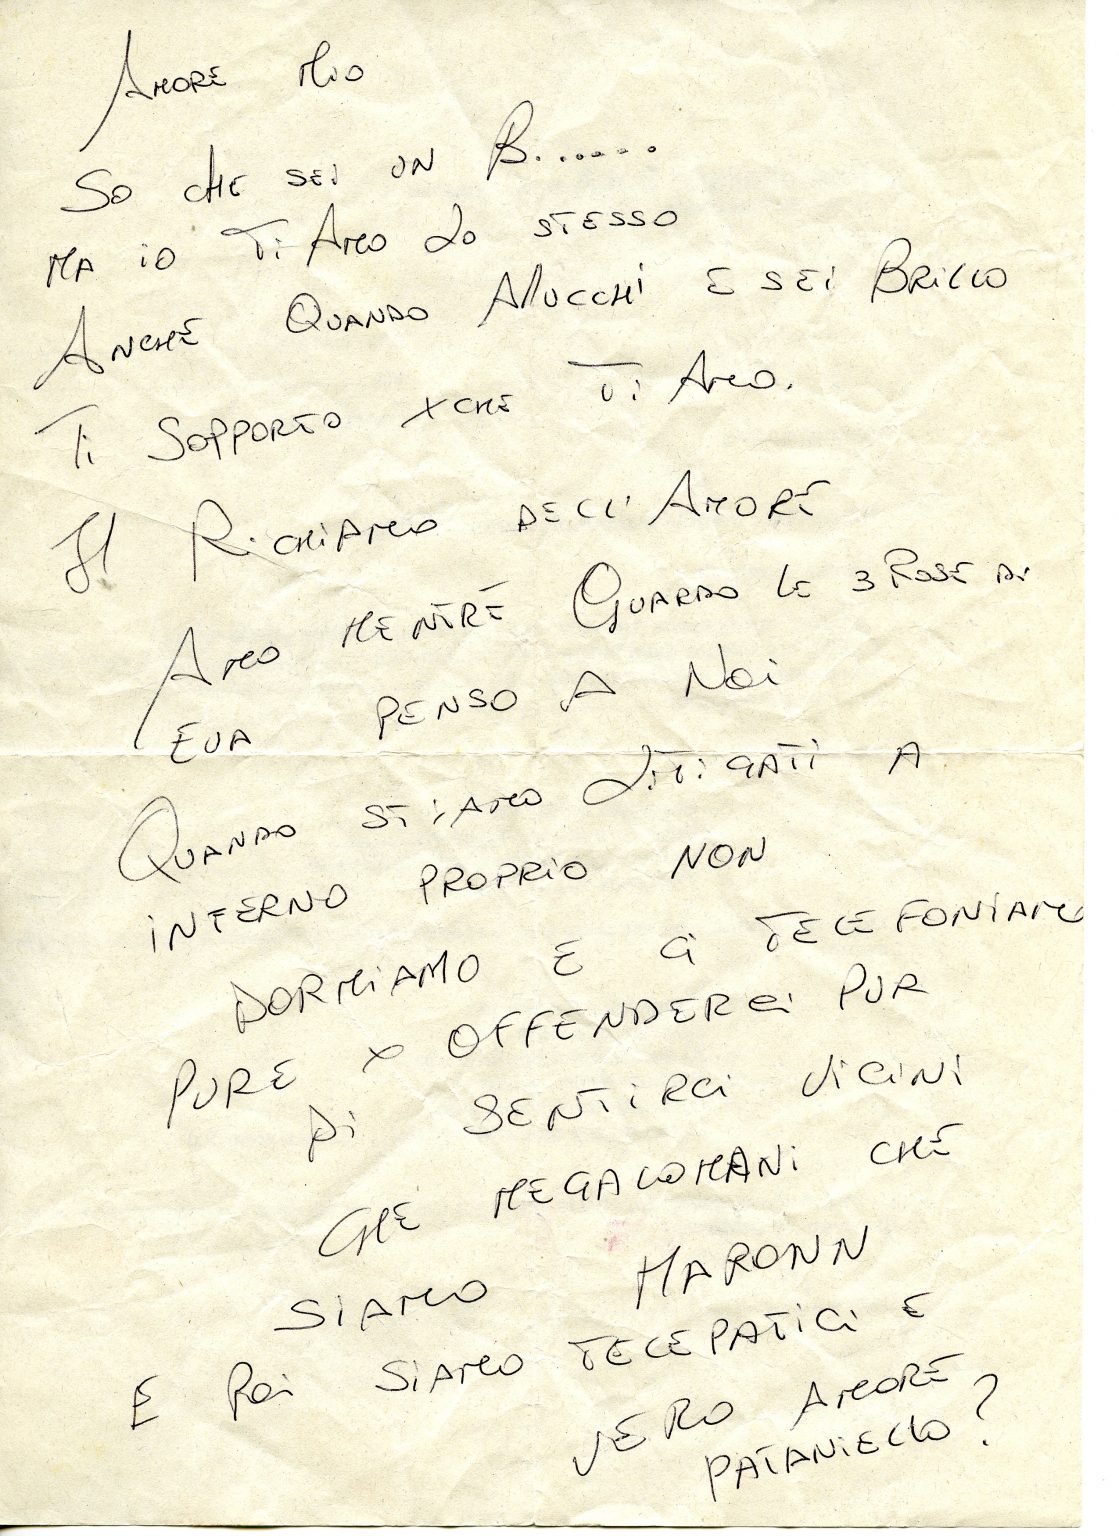 AMORE MIO
SO CHE SEI UN B.......
MA IO TI AMO LO STESSO
ANCHE QUANDO ALLUCCHI E SEI BRILLO
TI SOPPORTO XCHE TI AMO.
Il RICHIAMO DELL'AMORE
AMO MENTRE GUARDO LE 3 ROSE DI
EVA PENSO A NOI
QUANDO STIAMO LITIGATI A
INTERNO PROPRIO NON
DORMIAMO E CI TELEFONIAMO
PURE X OFFENDERCI PUR
DI SENTIRCI VICINI
CHE MEGALOMANI CHE
SIAMO MARONN
E POI SIAMO TELEPATICI E
VERO AMORE
PATANIELLO?